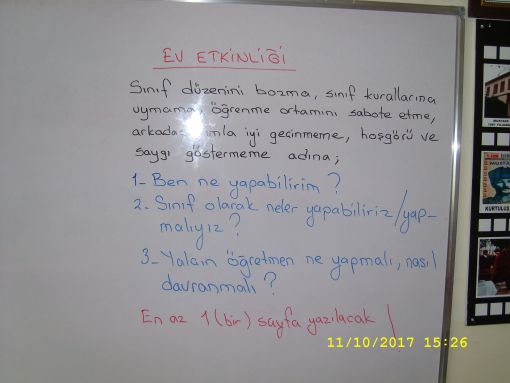 EV ETKİNLİĞİ
Sınıf düzenini bozma, sınıf kurallarına
uymama, öğrenme ortamını sabote etme,
iyi geçinmeme, hoşgörü ve
saygı göstermeme adına;
1- Ben ne yapabilirim?
2- Sınıf olarak neler yapabiliriz/yap-
malıyız?
3- Yalçın öğretmen ne yapmalı, nasıl
davranmalı?
En az 1 (bir) sayfa yazılacak!
KURTULUŞ
11/10/2017 15:26